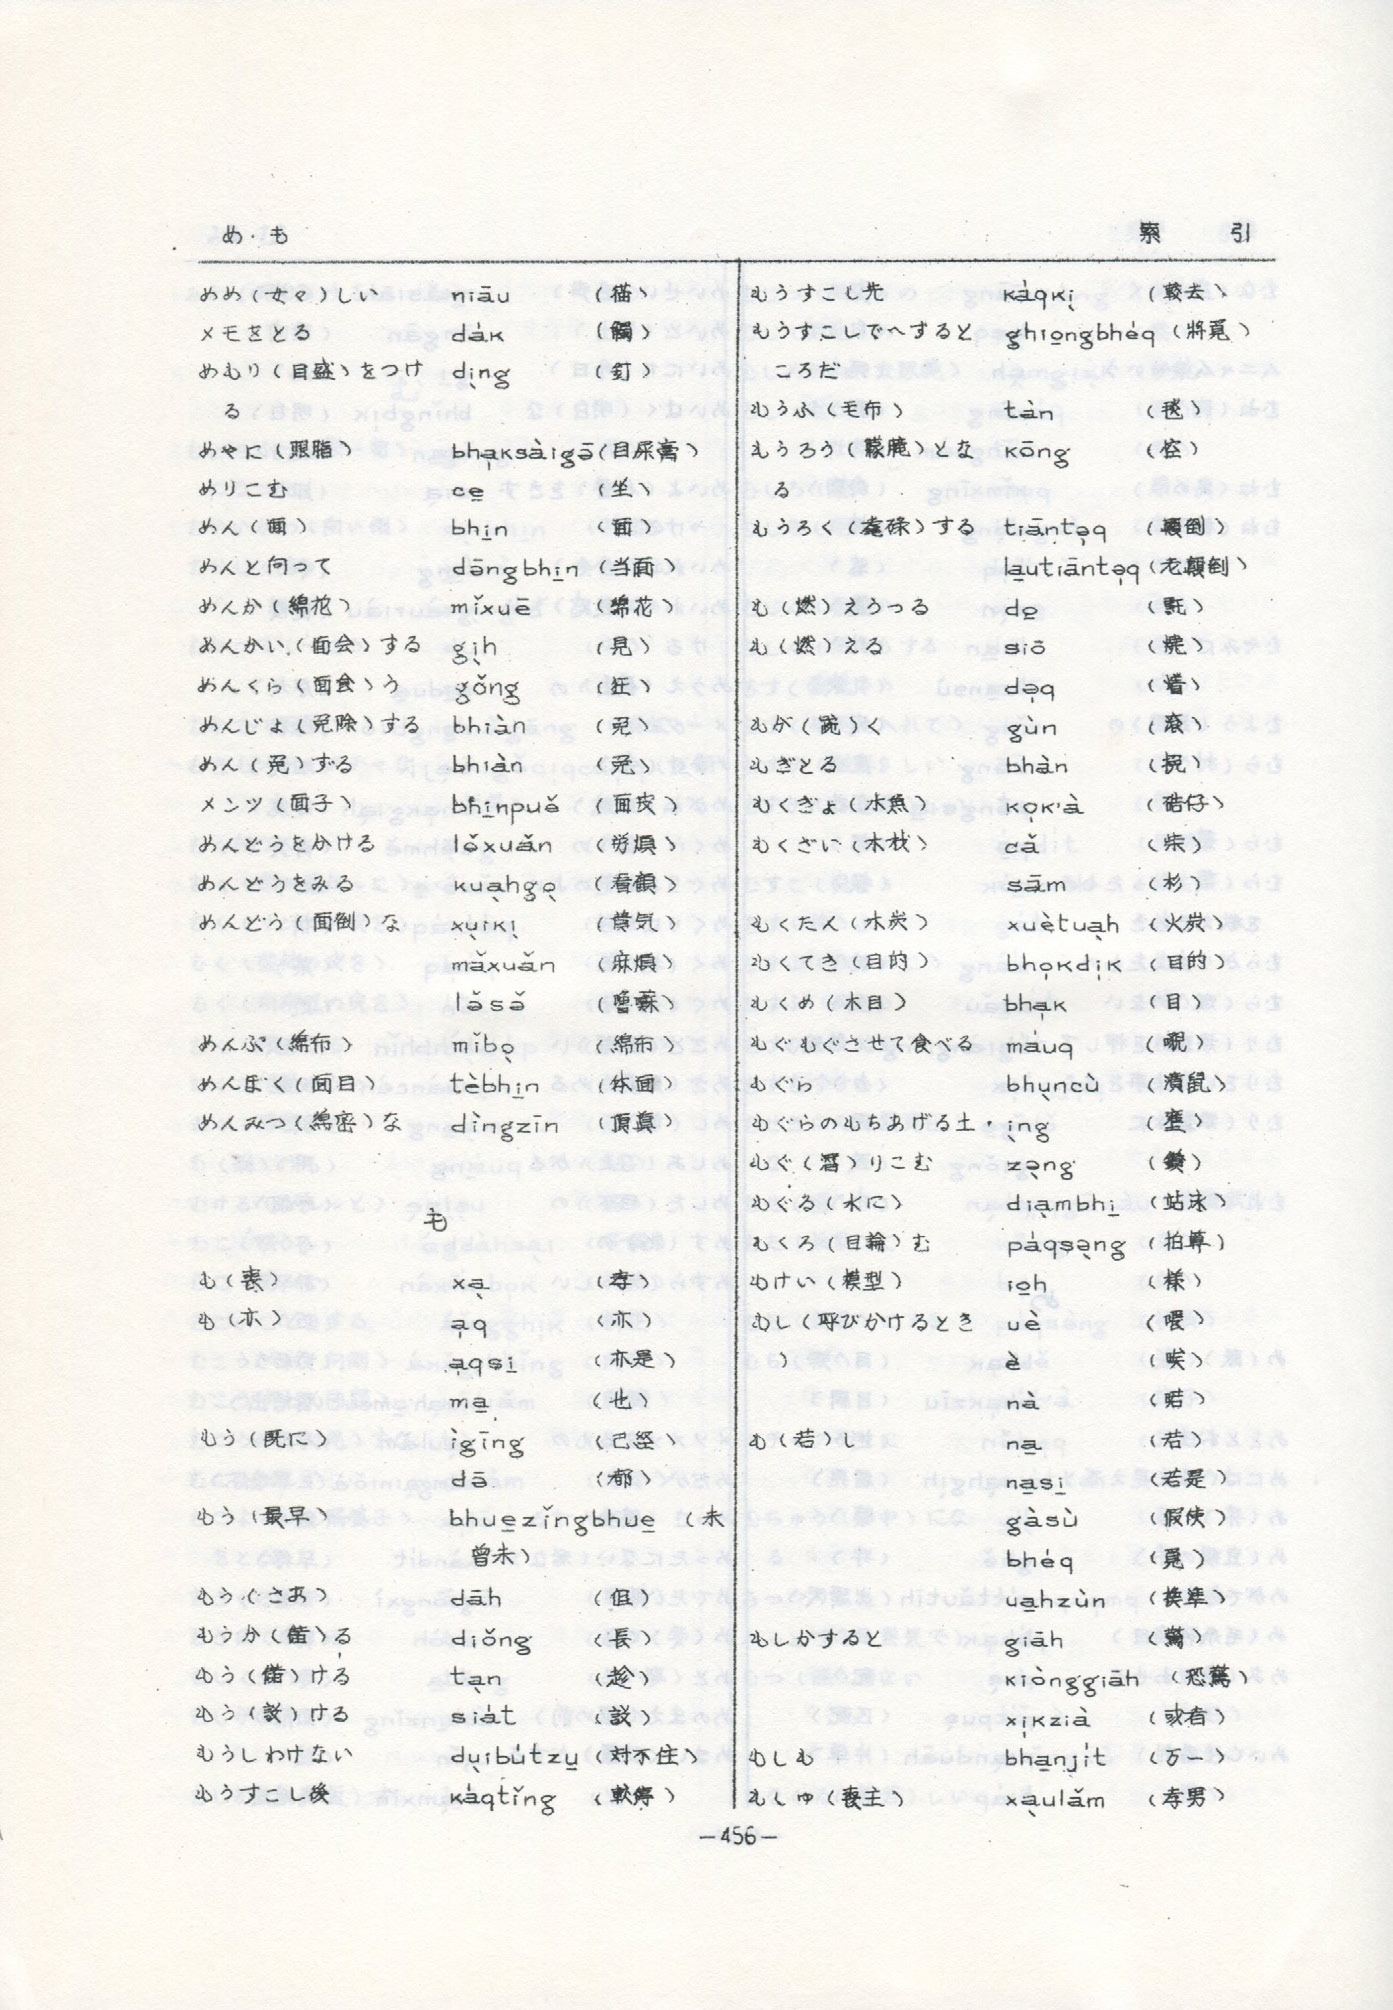 め・も
索 引
めめ(女々)しい niāu (猫)
メモをとる da̍k (觸)
めもり(目盛)をつけ dìng (釘)
る
めやに(眼脂) bha̩ksàigə̄ (目屎膏)
めりこむ ce̲ (坐)
めん(面) bhi̲n (面)
めんと向って dāngbhi̲n (当面)
めんか(綿花) mǐxuē (綿花)
めんかい(面会)する gi̩h (見)
めんくら(面食)う gǒng (狂)
めんじょ(免除)する bhiàn (免)
めん(免)ずる bhiàn (免)
メンツ(面子) bhi̲npuě (面皮)
めんどうをかける lə̌xuǎn (労煩)
めんどうをみる kua̩hgo̩ (看顧)
めんどう(面倒)な xu̩iki̩ (費気)
mǎxuǎn (麻煩)
lə̌sə̌ (嚕蘇)
めんぷ(綿布) mǐbo̩ (綿布)
めんぼく(面目) tèbhi̲n (体面)
めんみつ(綿密)な dìngzīn (頂真)
も
も(喪) xa̩ (孝)
も(亦) a̩q (亦)
a̩qsi̲ (亦是)
ma̲ (也)
もう(既に) ìgīng (已経)
dā (都)
もう(最早) bhue̲zǐngbhue̲ (未
曽未)
もう(さあ) dāh (但)
もうか(儲)る diǒng (長)
もう(儲)ける ta̩n (趁)
もう(設)ける sia̍t (設)
もうしわけない du̩ibu̍tzu̲ (対不住)
もうすこし後 ka̍qtǐng (較停)
もうすこし先 ka̍qki̩ (較去)
もうすこしで〜すると ghio̲ngbhe̍q (將覓)
ころだ
もうふ(毛布) tàn (毯)
もうろう(朦朧)とな kōng (倥)
る
もうろく(耄碌)する tiāntə̩q (顛倒)
la̲utiāntə̩q (老顛倒)
も(燃)えうつる də̲
も(燃)える siō (燒)
də̩q (着)
もが(踠)く gùn (滾)
もぎとる bhàn (挽)
もくぎょ(木魚) ko̩k'à
もくざい(木材) cǎ (柴)
sām (杉)
もくたん(木炭) xuètua̩h (火炭)
もくてき(目的) bho̩kdi̩k (目的
もくめ(木目) bha̩k (目)
もぐもぐさせて食べる ma̍uq
もぐら bhu̩ncù
もぐらのもちあげる土 i̩ng
もぐ(潛)りこむ zə̩ng (鑽)
もぐる(水に) dia̩mbhi̲
もくろ(目論)む pa̍qsə̩ng (拍算)
もけい(模型) io̲h (様)
もし(呼びかけるとき uè (喂)
) è (唉)
nà
も(若)し na̲ (若)
na̲si̲ (若是)
gàsù (假使)
bhe̍q (覓)
ua̲hzùn (換準)
もしかすると giāh (驚)
kiònggiāh (恐驚)
xi̩kzià (或者)
もしも bha̲nji̍t (万一)
もしゅ(喪主) xa̩ulǎm (孝男)
—456—